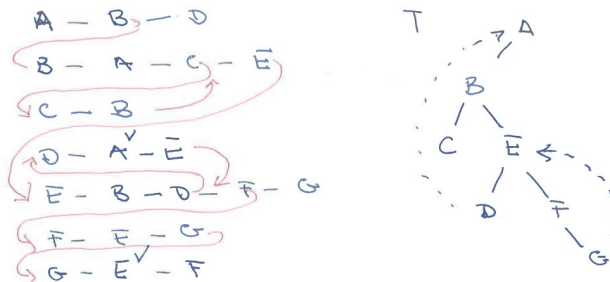 A - B - D
B - A - C - E
C - B
D - A - E
E - B - D - F - G
F - E - G
G - E - F
T
A
B
C E
D F
G